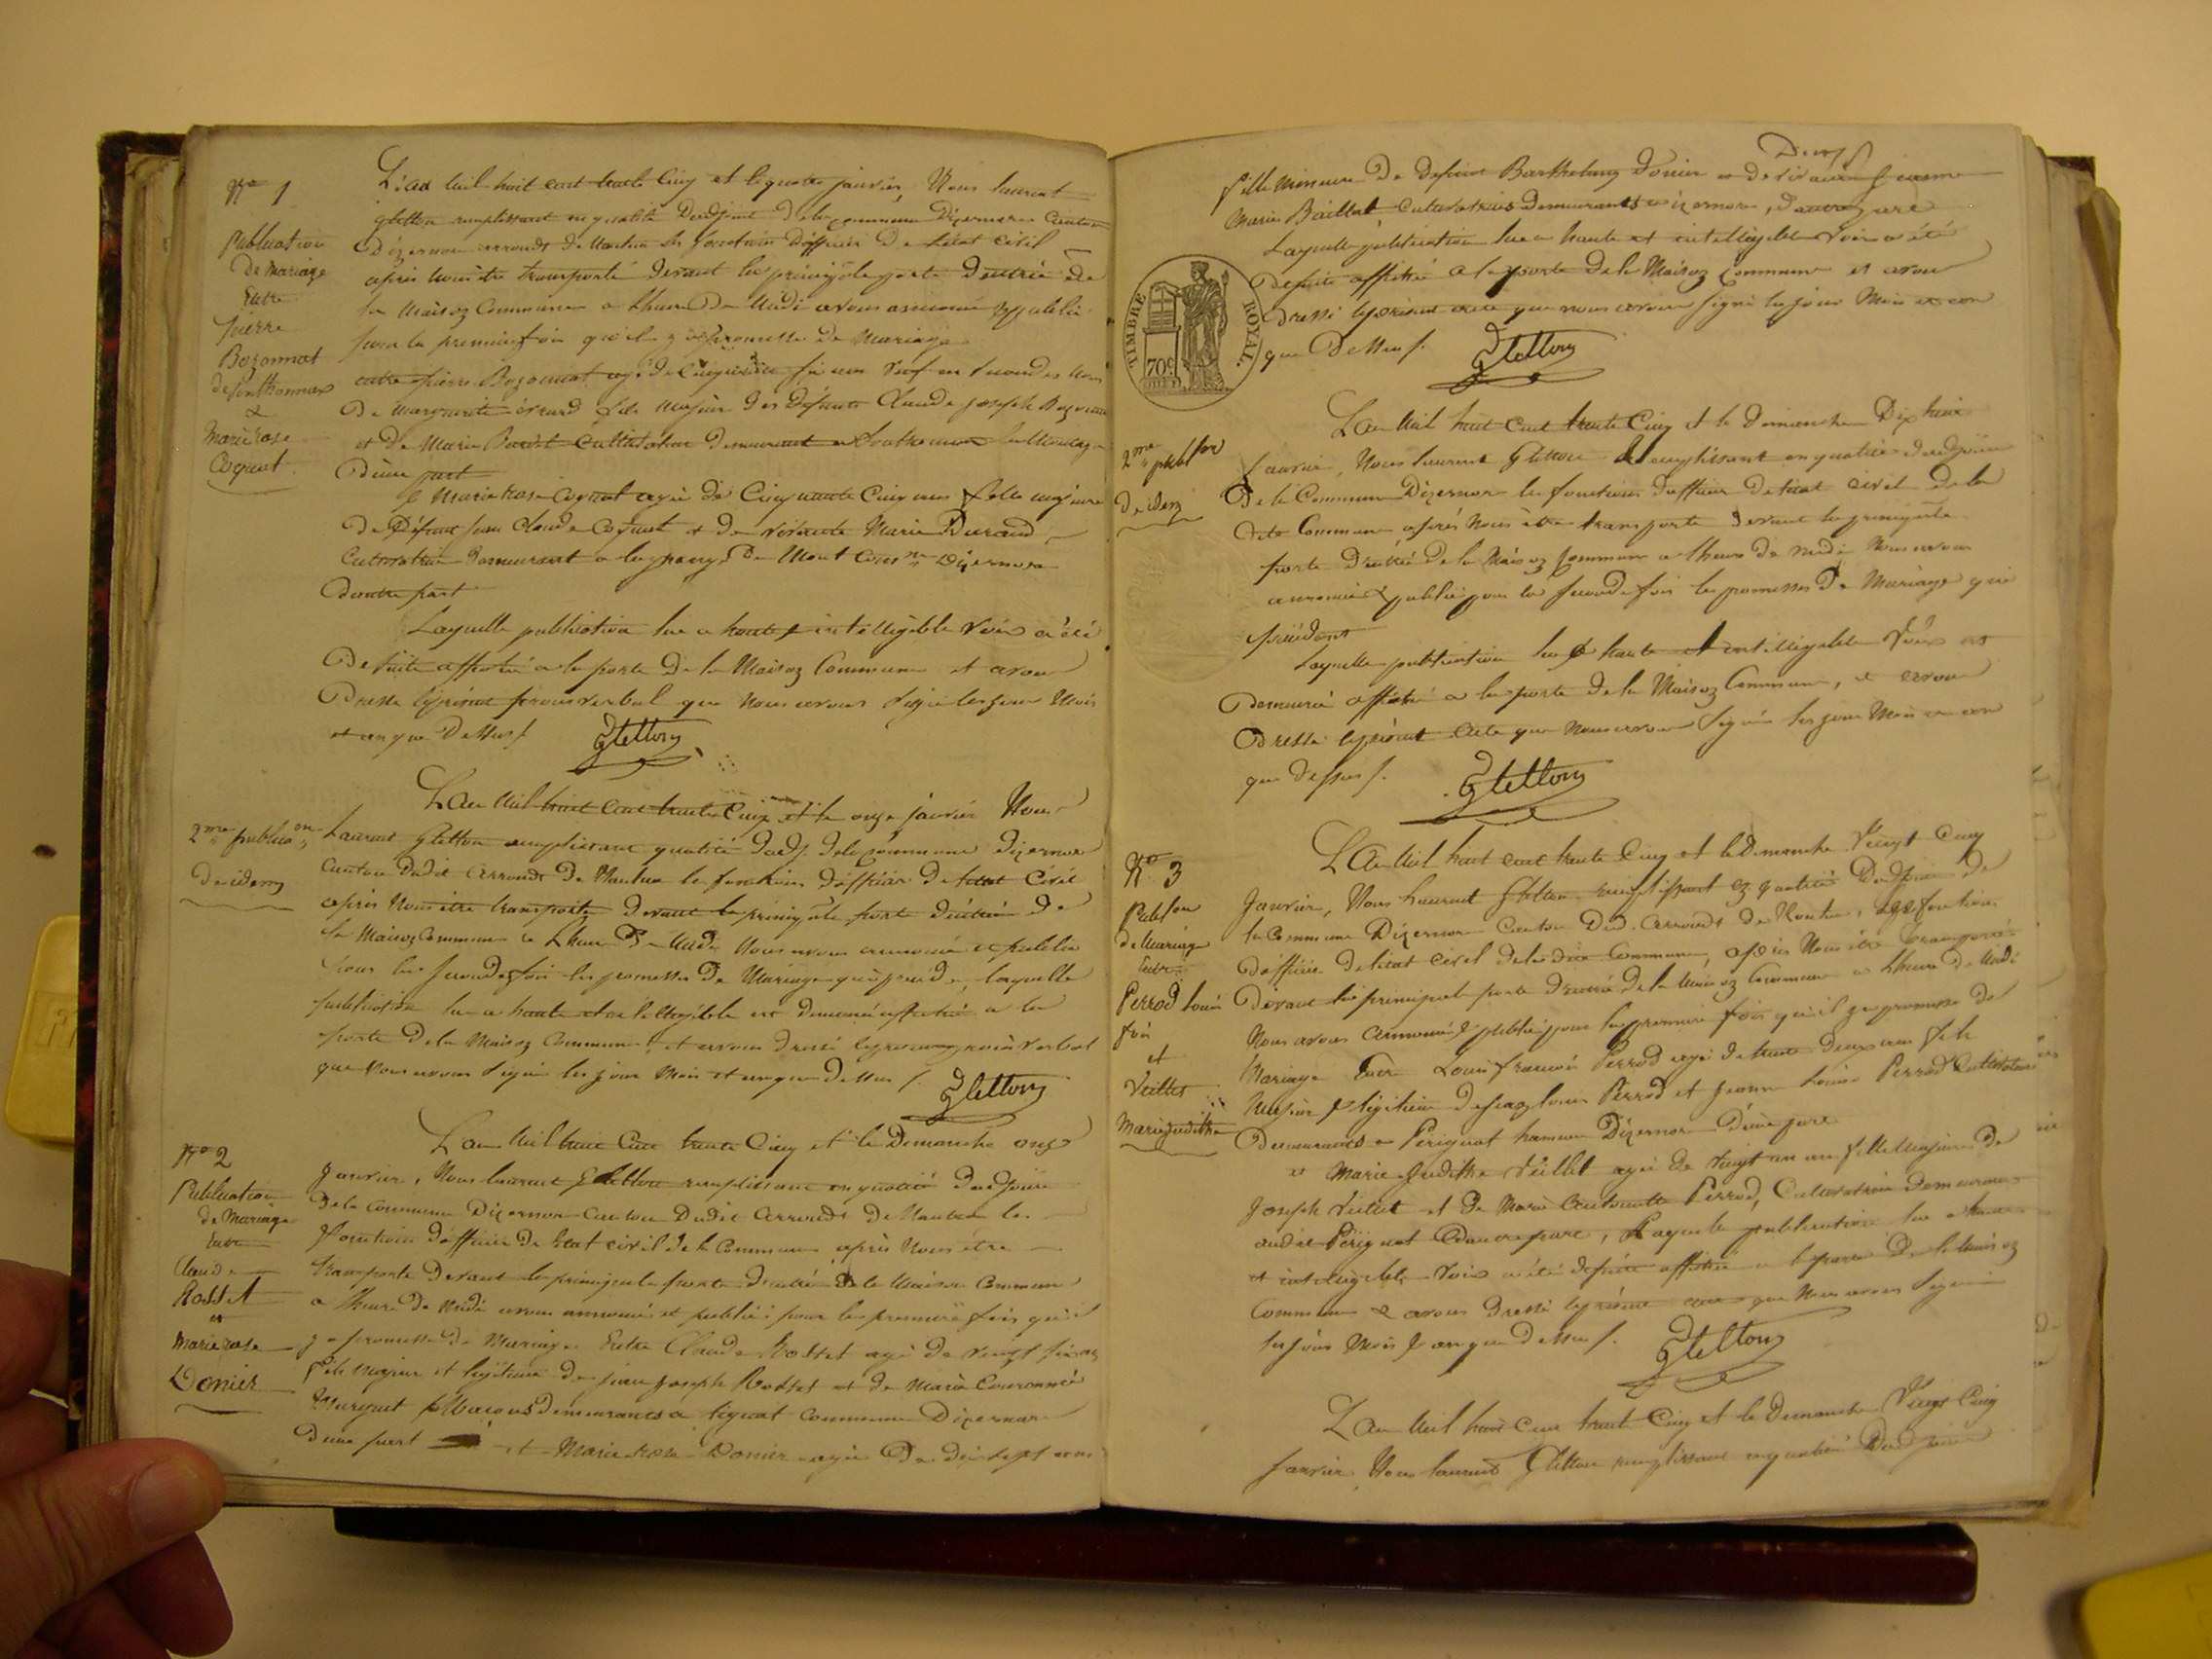 No 1
Publication
de Mariage
Entre
pierre
Bozonnat
de ponthonnax
&
Marie rose
Coquat
L'an mil huit cent trente cinq et le quatre janvier, Nous laurent
gletton remplissant en qualité d'adjoint de la commune d'izernore canton
d'izernore arrondt de Nantua les fonctions d'officier de l'état civil
après nous être transporté devant la principale porte d'entrée de
la Maison Commune a l'heure de Midi avons annoncé & publié
pour la première fois qu'il y a promesse de Mariage
entre pierre Bozonnat agé de cinquante six ans veuf en secondes
de marguerite évrard fils majeur des défunts Claude joseph Bozonnat
et de Marie cultivateur demeurant a
D'une part
& Marie Rose Coquat agée de Cinquante cinq ans fille majeure
de Défunt jean Claude Coquat & de vivante Marie Durand
Cultivatrice demeurant a de Mont Comne Dizernore
d'autre part
Laquelle publication lue a haute & intelligible voix a été
de suite affichée a la porte de la Maison Commune et avons
Dressé le présent procès verbal que Nous avons signé les jour Mois
et an que Dessus /. Gletton
2me publicaon
de idem
L'an Mil huit cent trente cinq et le onze janvier Nous
Laurent Gletton remplissant qualité d'adj. de la commune dizernore
canton dudit arrondt de Nantua les fonctions d'officier de l'état civil
après nous être transporté devant la principale porte d'entrée de
la Maison Commune a l'heure de Midi Nous avons annoncé & publié
pour la seconde fois les promesses de Mariage qui précède, laquelle
publication lue a haute et intelligible est demeurée affichée a la
porte de la Maison Commune, et avons dressé le présent procès verbal
que Nous avons signé les jour Mois et an que dessus /. Gletton
No 2
Publication
de Mariage
Entre
Claude
Rosset
et
Marie rose
Donier
L'an Mil huit Cent trente Cinq et le Dimanche onze
janvier, Nous laurent Gletton remplissant en qualité d'adjoint
de la Commune Dizernore Canton Dudit Arrondt de Nantua les
fonctions d'officier de l'état civil de la Commune après Nous être
transporté devant la principale porte d'entrée de la Maison Commune
a l'heure de Midi avons annoncé et publié pour la première fois qu'il
y a promesse de Mariage Entre Claude Rosset agé de vingt six ans
fils majeur et légitime de joseph Rosset et de Marie
demeurants a commune Dizernore
D'une part et Marie Rose Donier agée De dix sept ans
fille Mineure De défunt Barthelemy Donier et de vivante jeanne
Marie Baillat cultivatrice demeurants a izernore, d'autre part
Laquelle publication lue a haute et intelligible voix a été
De suite affichée a la porte de la Maison Commune et avons
dressé le présent acte que nous avons signé les jour Mois et an
que Dessus /. Gletton
TIMBRE ROYAL.
70c
2me publion
de idem
L'an Mil huit Cent trente Cinq et le Dimanche Dix huit
janvier, Nous laurent Gletton Remplissant en qualité d'adjoint
De la Commune Dizernore les fonctions d'officier de l'état civil de la
dite Commune après Nous être transporté devant la principale
porte D'entrée de la Maison Commune a l'heure de midi Nous avons
annoncé & publié pour la seconde fois les promesses De Mariage qui
précèdent
Laquelle publication lue a haute et intelligible Voix est
Demeurée affichée a la porte de la Maison Commune, et avons
Dressé le présent acte que nous avons signé les jour Mois et an
que dessus /. Gletton
No 3
Publion
de Mariage
Entre
Perrod louis
fois
et
Veillet
Marie judithe
L'An Mil huit cent trente Cinq et le Dimanche Vingt Cinq
Janvier, Nous Laurent Gletton remplissant en qualité D'adjoint de
la Commune Dizernore Canton Dud. Arrondt de Nantua, les fonctions
d'officier de l'état civil de la dite Commune, après Nous être transporté
devant la principale porte d'entrée de la Maison Commune a l'heure de Midi
Nous avons annoncé & publié pour la première fois qu'il y a promesse de
Mariage Entre Louis françois Perrod agé de trente deux ans fils
Majeur & légitime de jean louis Perrod et jeanne Louise Perrod Cultivateurs
Demeurants a Perignat hameau Dizernore D'une part
et Marie Judithe Veillet agée de vingt un an fille Majeure De
Joseph Veillet et de Marie Antoinette Perrod, Cultivatrice demeurants
audit Pérignat D'autre part, Laquelle publication lue a haute
et intelligible voix a été de suite affichée a la porte De la Maison
Commune & avons Dressé le présent acte que Nous avons signé
les jour Mois & an que dessus /. Gletton
L'an Mil huit Cent trente Cinq et le Dimanche Vingt Cinq
Janvier, Nous laurent Gletton remplissant en qualité D'adjoint